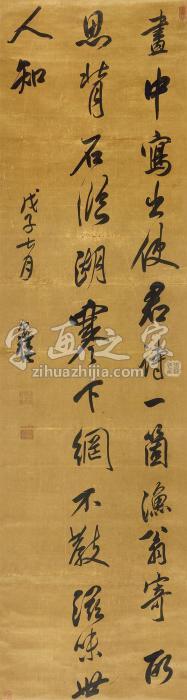 畫中寫出使君詩一箇漁翁寄所
思背石臨湖寒下網不教滋味世
人知
戊子七月
字画之家
www.zihuazhijia.com